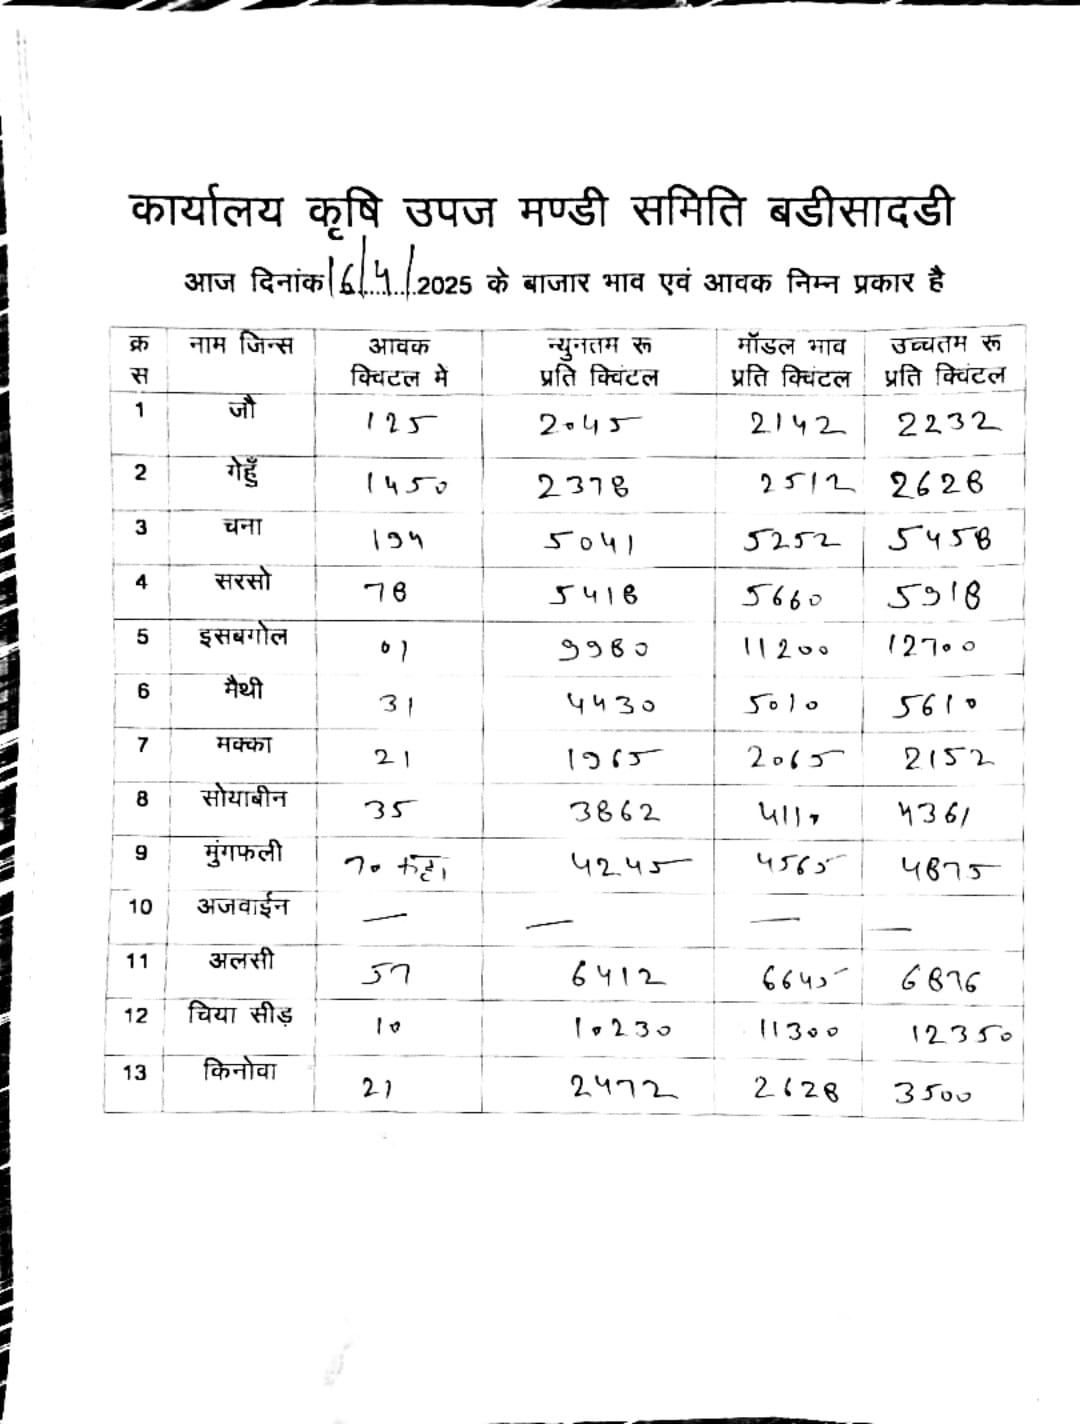 कार्यालय कृषि उपज मण्डी समिति बडीसादडी
आज दिनांक 16/4/2025 के बाजार भाव एवं आवक निम्न प्रकार है
क्र स नाम जिन्स आवक क्विटल मे न्युनतम रू प्रति क्विंटल मॉडल भाव प्रति क्विंटल उच्चतम रू प्रति क्विंटल
1 जौ 125 2045 2142 2232
2 गेहुँ 1450 2378 2512 2628
3 चना 194 5041 5252 5458
4 सरसो 78 5418 5660 5918
5 इसबगोल 01 9980 11200 12700
6 मैथी 31 4430 5010 5610
7 मक्का 21 1965 2065 2152
8 सोयाबीन 35 3862 4110 4361
9 मुंगफली 70 4245 4565 4875
10 अजवाईन — — — —
11 अलसी 57 6412 6645 6876
12 चिया सीड़ 10 10230 11300 12350
13 किनोवा 21 2472 2628 3500